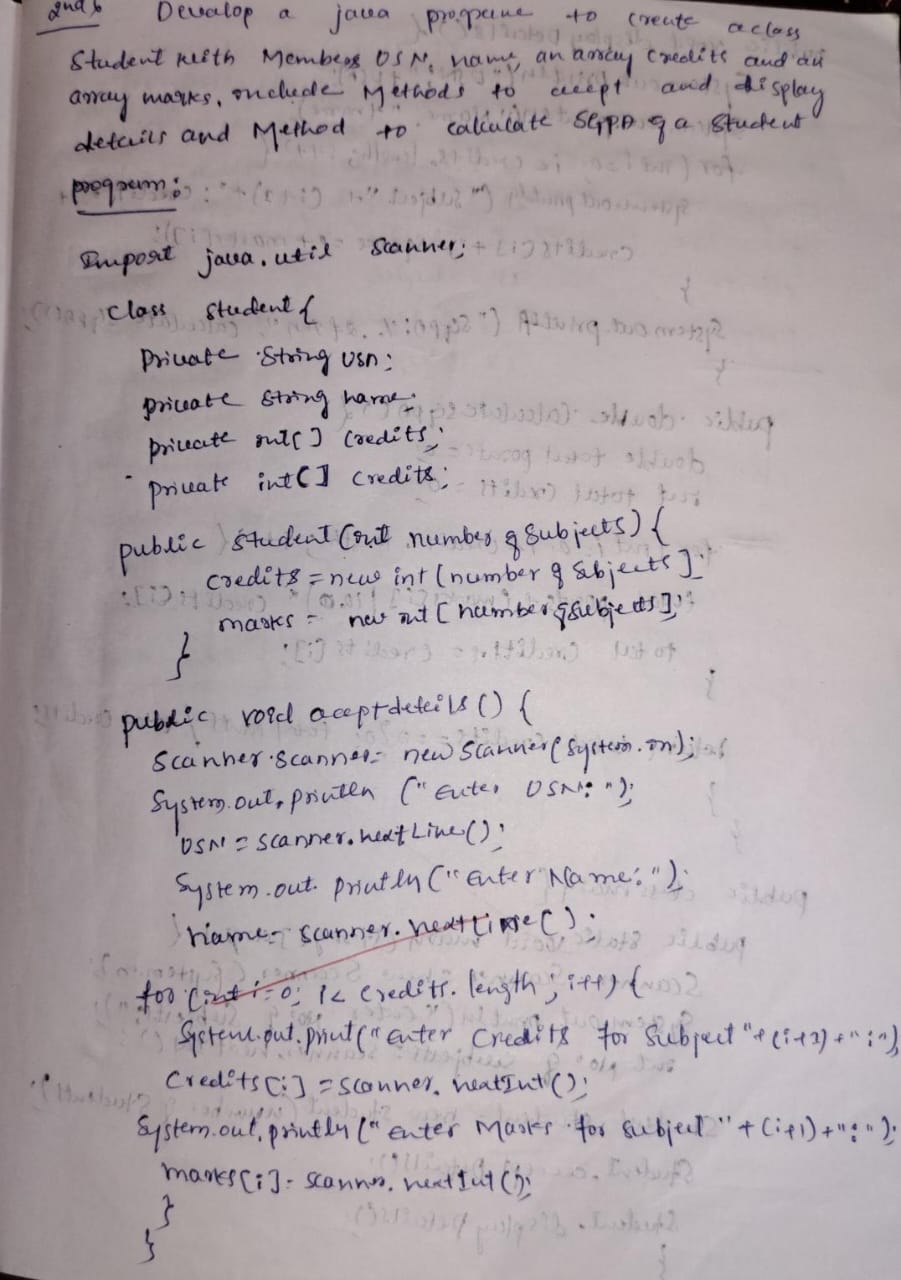 2nd
Develop a java programe to create a class
Student with Members USN, name, an array credits and an
array marks, include Methods to accept and display
details and Method to calculate SGPA of a Student
program:
Import java.util Scanner;
Class Student {
Private String usn;
private String name;
private int[] Credits;
private int[] Credits;
public Student (int number of Subjects) {
credits = new int [number of Subjects];
marks = new int [number of Subjects];
}
public void acceptdetails () {
Scanner scanner = new Scanner (System.in);
System.out, println ("Enter USN: ");
USN = scanner.nextLine();
System.out. println ("Enter Name: ");
Name = scanner.nextLine();
for (int i=0; i< Credits. length; i++) {
System.out.print ("Enter Credits for Subject "+(i+1)+":");
Credits[i] = Scanner. nextInt();
System.out, println ("Enter Marks for Subject "+(i+1)+": ");
marks[i] = Scanner. nextInt();
}
}